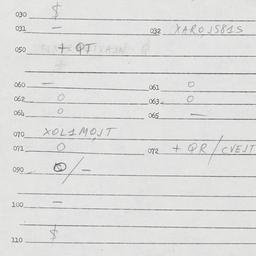 030 $
031 — 032 XARO,J581S
050 + QT
060 — 061 O
062 O 063 O
064 O 065 —
070 XOL1MO,JT
071 O 072 + QR/CVEJT
090 O/—
100 —
110 $